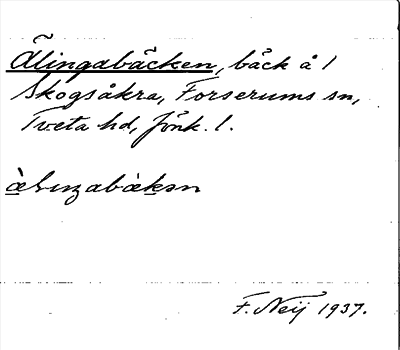 Älingabäcken, bäck å /
Skogsåkra, Forserums sn,
Tveta hd, Jönk. l.
F. Neij 1937.